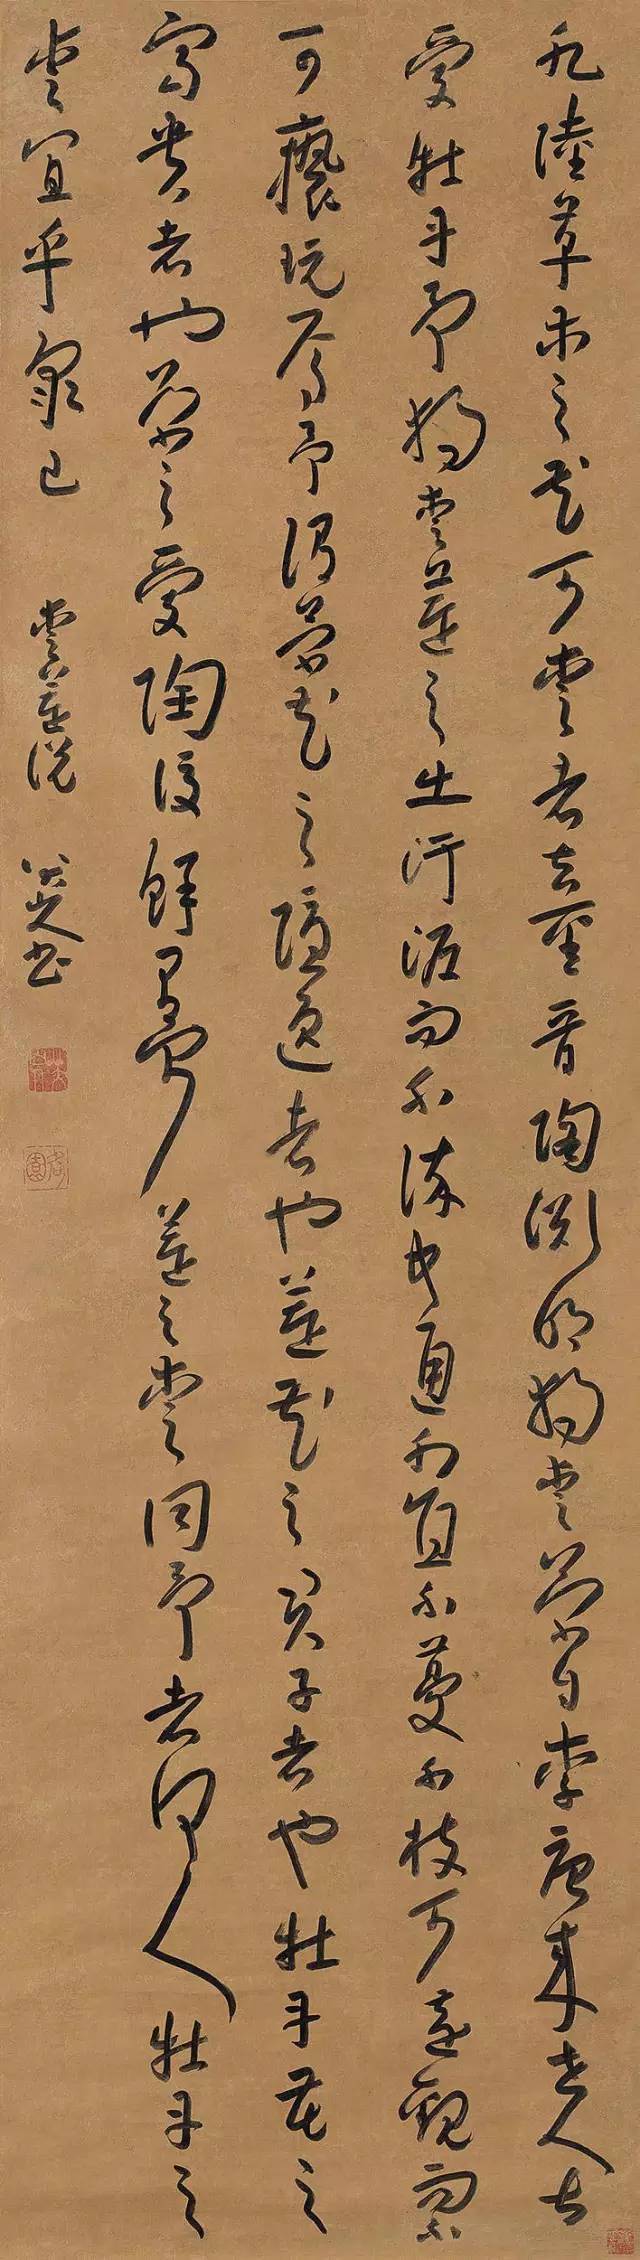 凡陸草木之花可愛者甚晉陶淵明獨愛菊自李唐來世人甚
愛牡丹予獨愛蓮之出汙泥而不染中通外直不蔓不枝可遠觀而不
可褻玩焉予謂菊花之隱逸者也蓮花之君子者也牡丹花之
富貴者也菊之愛陶後鮮有聞蓮之愛同予者何人牡丹之
愛宜乎眾已
愛蓮說
八大山人書